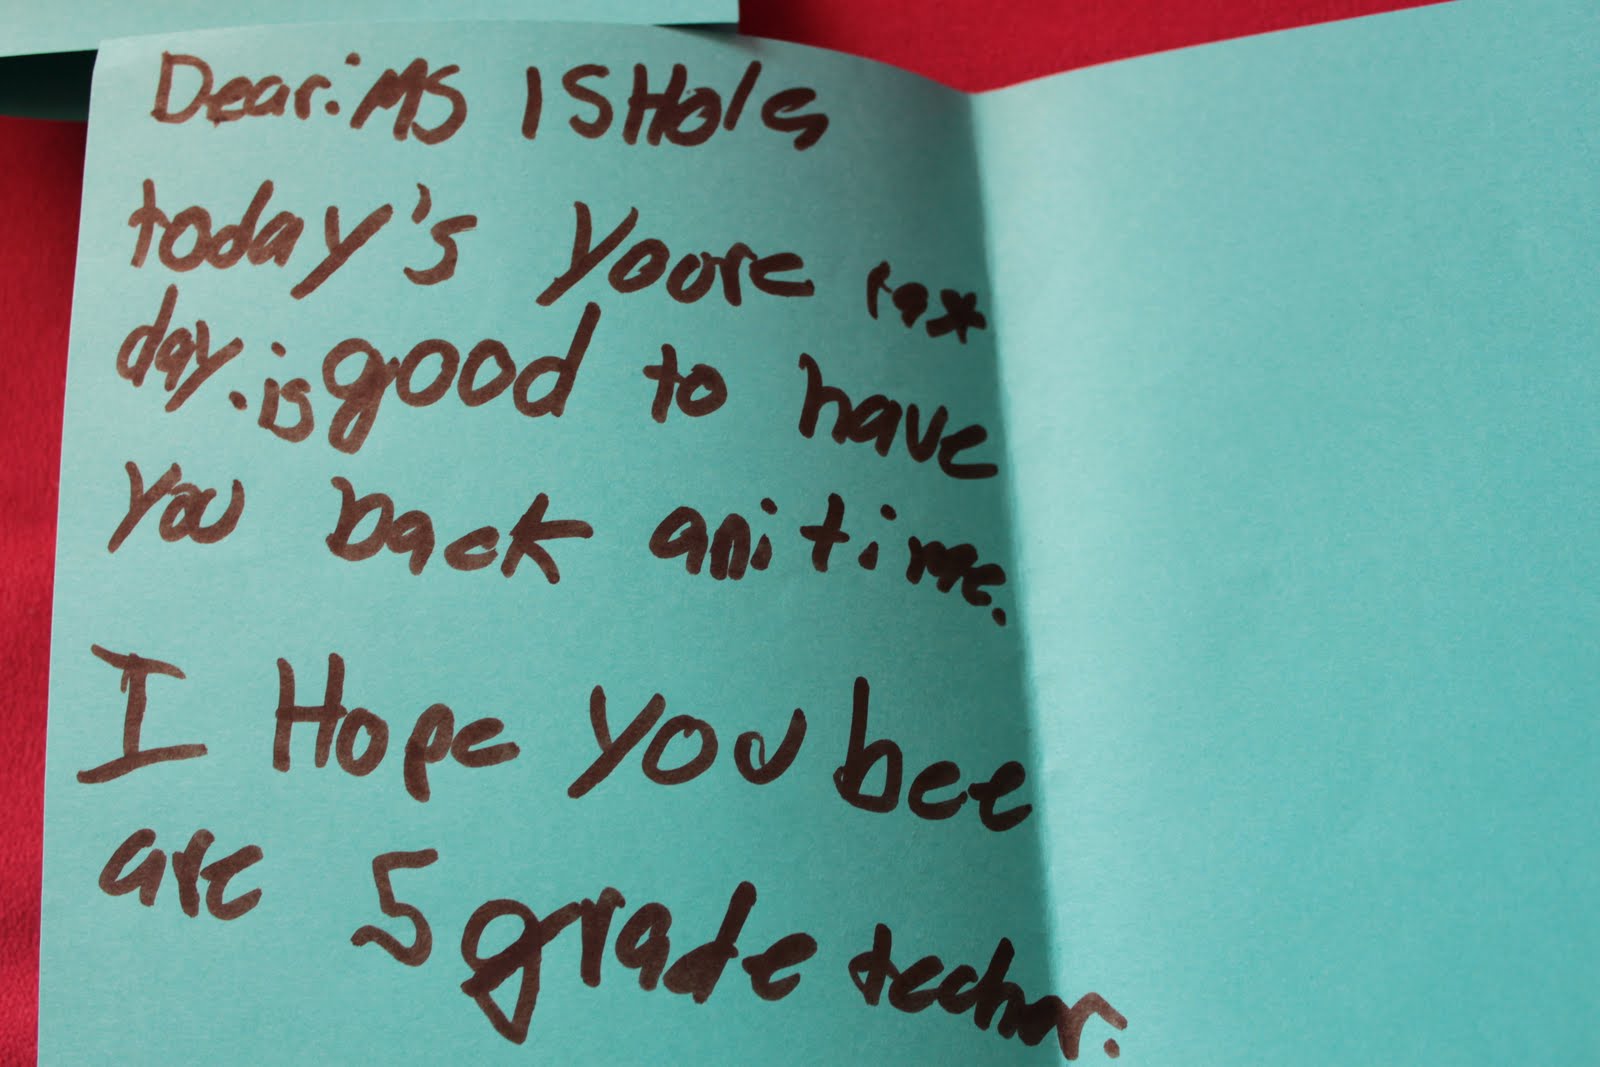 Dear: MS ISHoles
today's yoore last
day. is good to have
you back anitime.
I Hope you bee
are 5 grade techer.